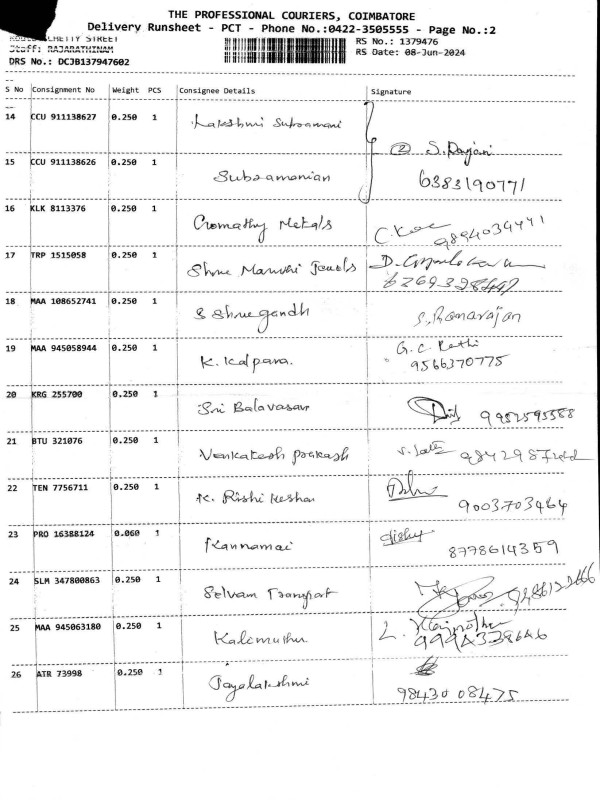 THE PROFESSIONAL COURIERS, COIMBATORE
Delivery Runsheet - PCT - Phone No.:0422-3505555 - Page No.:2
CHETTY STREET
RS No.: 1379476
Staff: RAJARATHINAM
RS Date: 08-Jun-2024
DRS No.: DCJB137947602
S No Consignment No Weight PCS Consignee Details Signature
14 CCU 911138627 0.250 1 Lakshmi Subramani
15 CCU 911138626 0.250 1 Subramanian ② S. Rajani 6383190771
16 KLK 8113376 0.250 1 Cromathy Metals 9894034441
17 TRP 1515058 0.250 1 Shree Maruthi Jewels D.
18 MAA 108652741 0.250 1 S Shree gandh S. Ramarajan
19 MAA 945058944 0.250 1 K. Kalpana. G. C. Rathi 9566370775
20 KRG 255700 0.250 1 Sri Balavasan 9952595588
21 BTU 321076 0.250 1 Venkatesh prakash
22 TEN 7756711 0.250 1 K. Rishi Keshan 9003703464
23 PRO 16388124 0.060 1 Kannamai 8778614359
24 SLM 347800863 0.250 1 Selvam Transport
25 MAA 945063180 0.250 1 Kalimuthu L. 9994338646
26 ATR 73998 0.250 1 Jayalakshmi 98430 08475